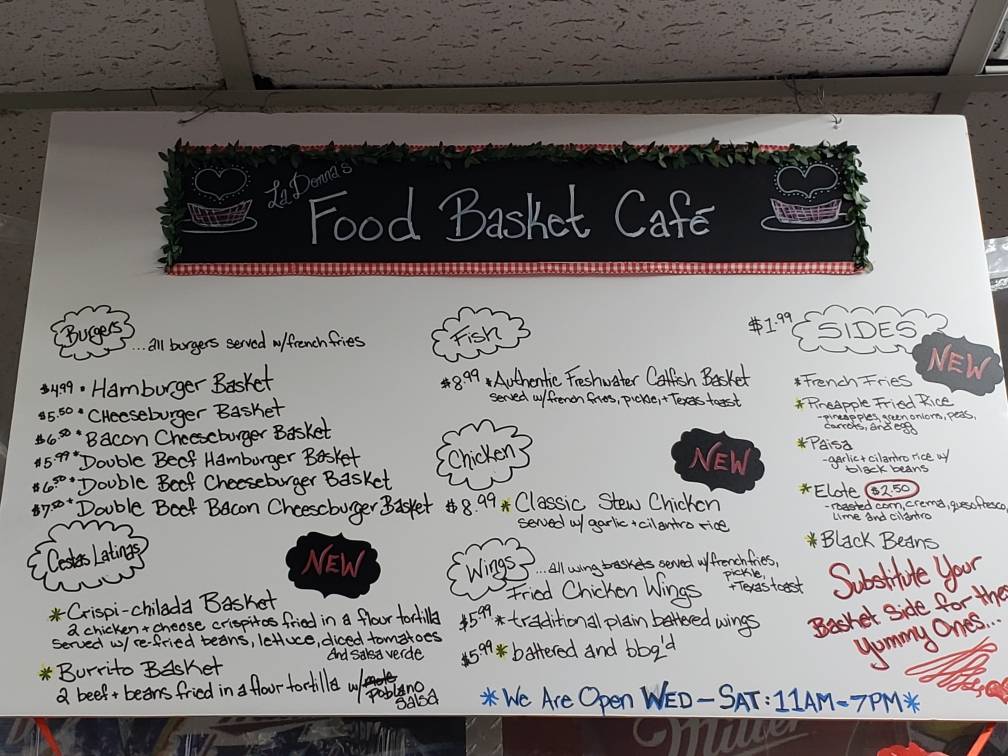 LaDonna's
Food Basket Café
Burgers ...all burgers served w/french fries
$4.99 • Hamburger Basket
$5.50 • Cheeseburger Basket
$6.50 • Bacon Cheeseburger Basket
$5.99 • Double Beef Hamburger Basket
$6.50 • Double Beef Cheeseburger Basket
$7.50 • Double Beef Bacon Cheeseburger Basket
Cestas Latinas NEW
*Crispi-chilada Basket
2 chicken + cheese crispitos fried in a flour tortilla
served w/ re-fried beans, lettuce, diced tomatoes
and salsa verde
*Burrito Basket
2 beef + beans fried in a flour tortilla w/
poblano
salsa
Fish
$8.99 *Authentic Freshwater Catfish Basket
served w/french fries, pickle, + Texas toast
Chicken NEW
$8.99 * Classic Stew Chicken
served w/ garlic + cilantro rice
Wings ...all wing baskets served w/french fries,
pickle,
+ Texas toast
Fried Chicken Wings
$5.99 *traditional plain battered wings
$5.99 * battered and bbq'd
*We Are Open WED - SAT: 11AM - 7PM*
$1.99 SIDES
NEW
*French Fries
*Pineapple Fried Rice
-pineapples, green onions, peas,
carrots, and egg
*Paisa
-garlic + cilantro rice w/
black beans
*Elote $2.50
-roasted corn, crema, queso fresco,
lime and cilantro
*Black Beans
Substitute Your
Basket Side for the
Yummy Ones...
Miller